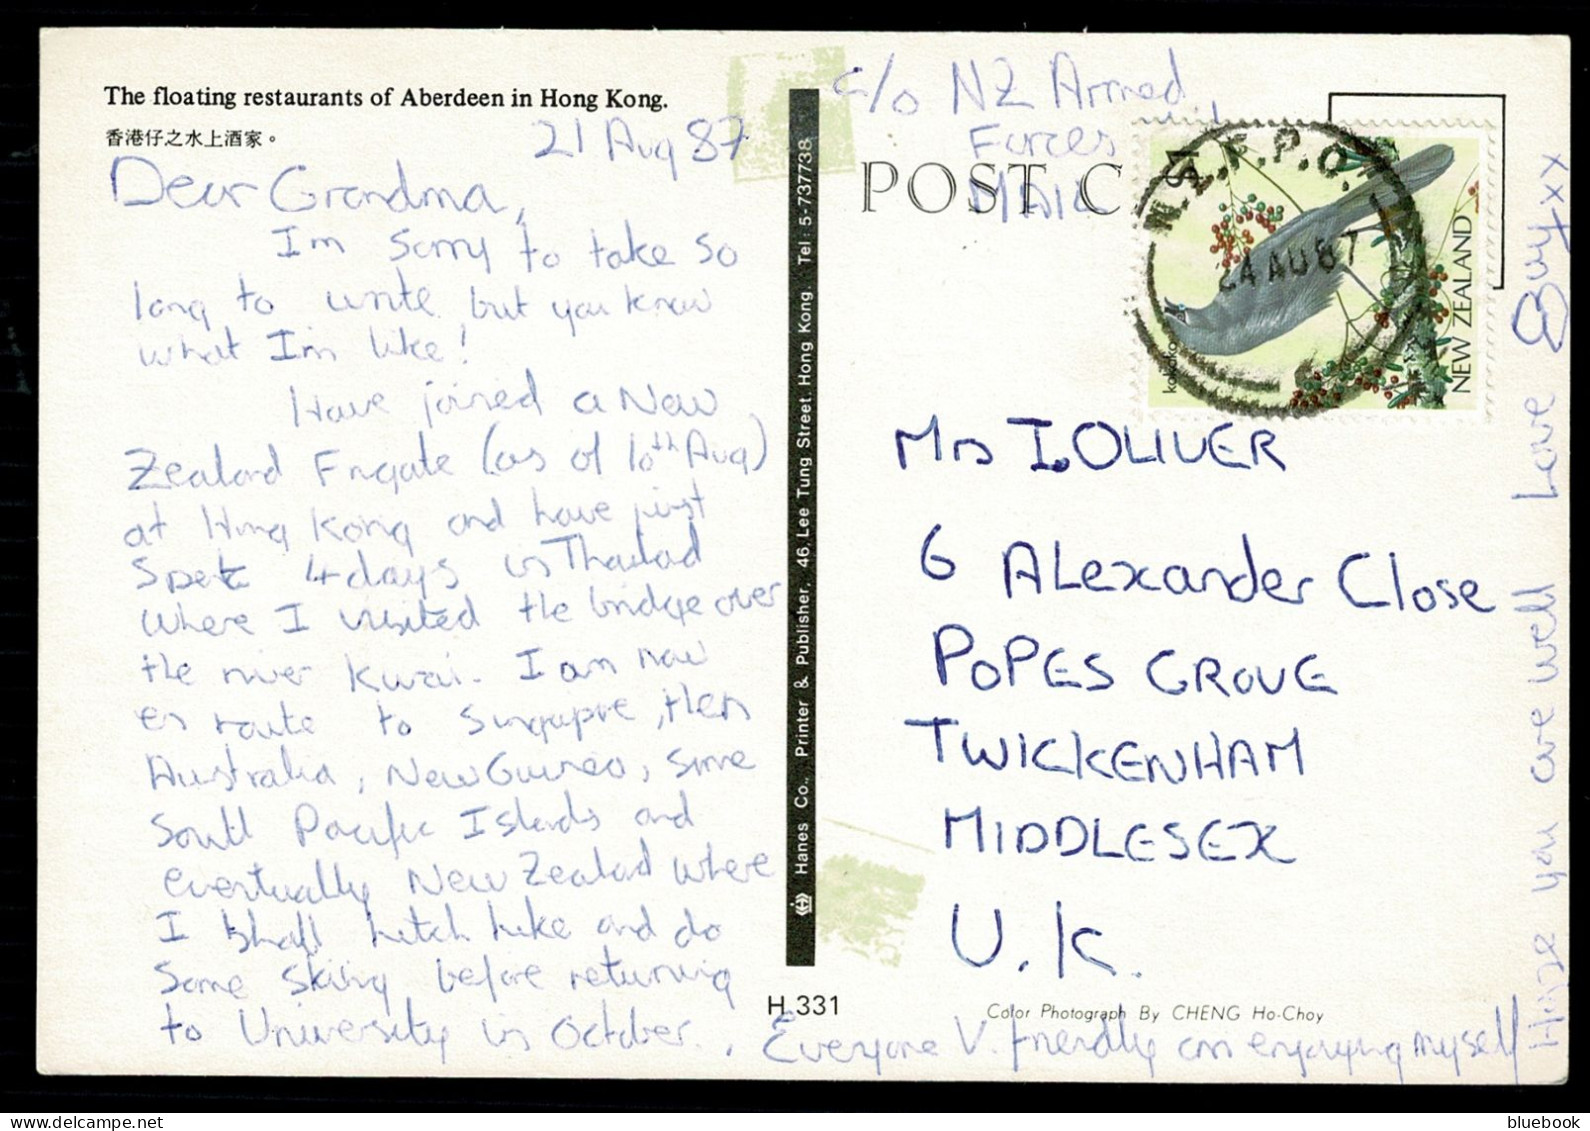 The floating restaurants of Aberdeen in Hong Kong.
香港仔之水上酒家。
21 Aug 87
Dear Grandma,
I'm sorry to take so
long to write but you know
what I'm like!
Have joined a New
Zealand Frigate (as of 10th Aug)
at Hong Kong and have just
spent 4 days in Thailand
where I visited the bridge over
the river Kwai. I am now
en route to Singapore, then
Australia, New Guinea, some
South Pacific Islands and
eventually New Zealand where
I shall hitch hike and do
some skiing before returning
to University in October.
Everyone V. friendly am enjoying myself
Hope you are well Love Guy xx
Hanes Co., Printer & Publisher, 46, Lee Tung Street, Hong Kong. Tel: 5-737738
H 331
c/o NZ Armed
Forces
MAIL
POST C
N.Z.F.P.O. 1
24 AU 87
kokako
NEW ZEALAND
Mrs I. OLIVER
6 Alexander Close
POPES GROVE
TWICKENHAM
MIDDLESEX
U.K.
Color Photograph By CHENG Ho-Choy
bluebook